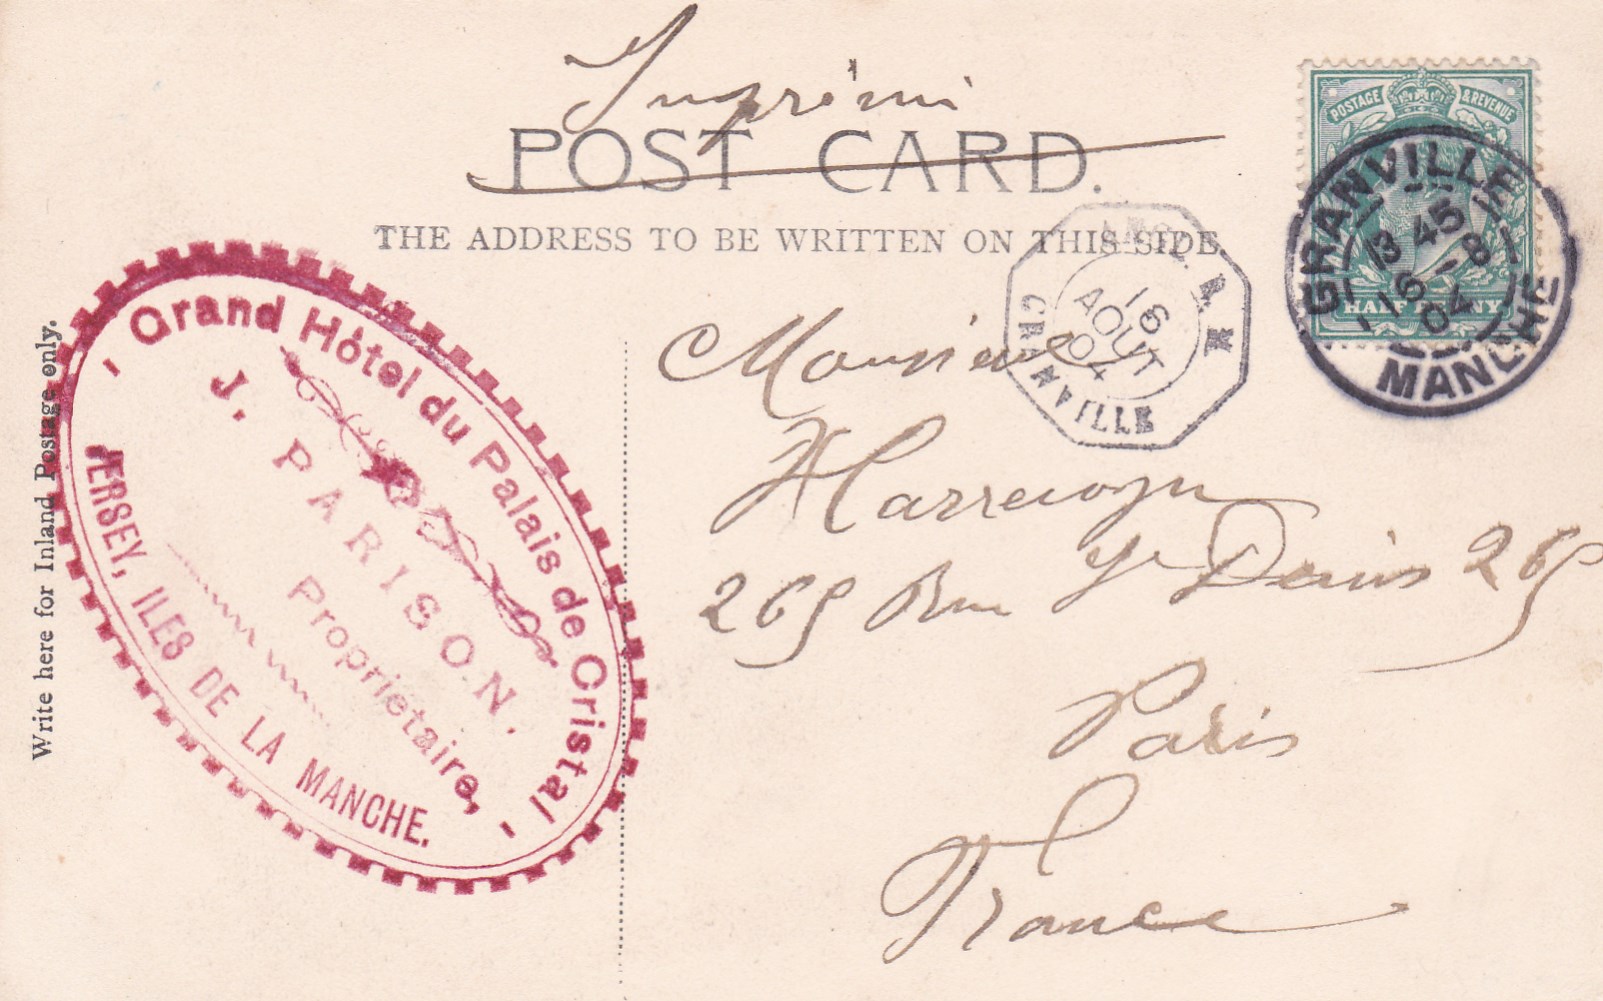 Imprimé
POST CARD.
THE ADDRESS TO BE WRITTEN ON THIS SIDE
POSTAGE & REVENUE
HALF PENNY
GRANVILLE
13 45
16 - 8
04
MANCHE
ANGL. B. M
16
AOUT
04
GRANVILLE
Write here for Inland Postage only.
- Grand Hôtel du Palais de Cristal -
J. PARISON.
Propriétaire,
JERSEY, ILES DE LA MANCHE.
Monsieur
269 Rue St Denis 269
Paris
France